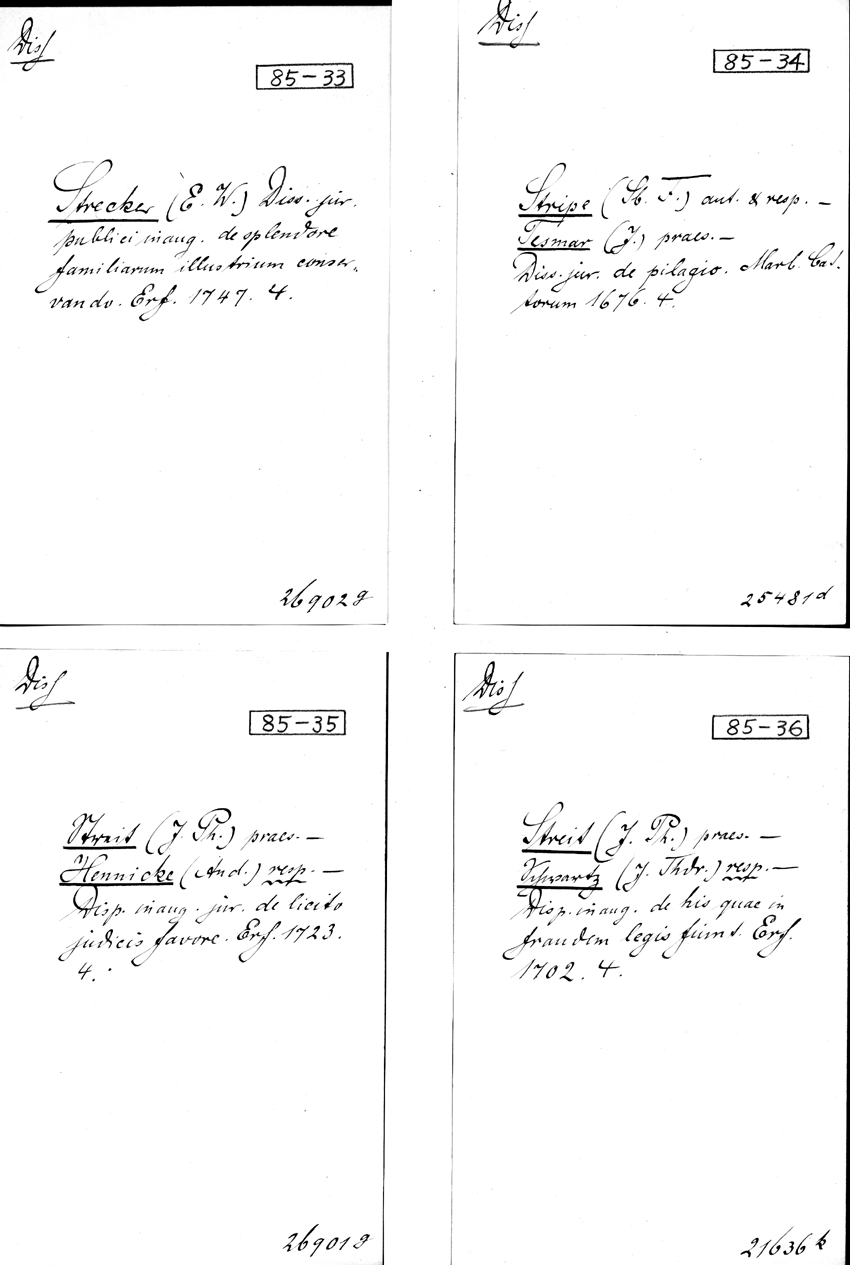 Diss
85-33
Strecker (E. W.) Diss. jur.
publici inaug. de splendore
familiarum illustrium conser-
vando. Erf. 1747. 4.
26902g
Diss
85-34
Stripe (Sb. F.) aut. & resp. —
Tesmar (J.) praes. —
Diss. jur. de pilagio. Marb. Cat-
torum 1676. 4.
25481d
Diss
85-35
Streit (J. Ph.) praes. —
Hennicke (And.) resp. —
Disp. inaug. jur. de licito
judicis favore. Erf. 1723.
4.
26901g
Diss
85-36
Streit (J. Ph.) praes. —
Schwartz (J. Thdr.) resp. —
Disp. inaug. de his quae in
fraudem legis fiunt. Erf.
1702. 4.
21636k